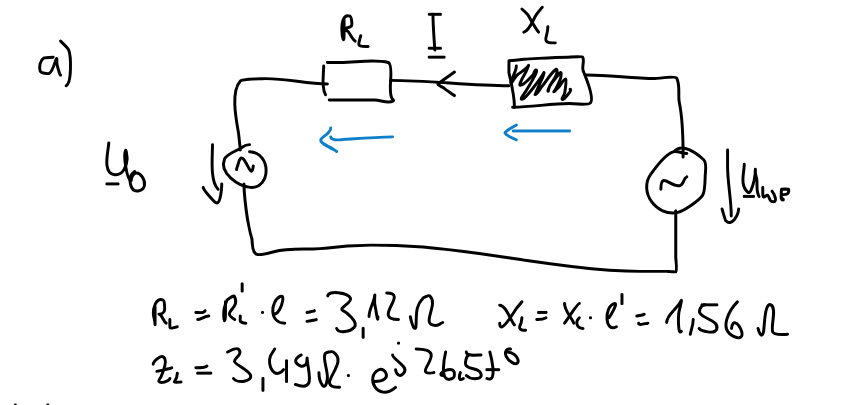 a)
R_L I X_L
U_0 ~ ~ U_WP
R_L = R_L' · l = 3,12 Ω X_L = X_L · l' = 1,56 Ω
Z_L = 3,49 Ω · e^j26,57°